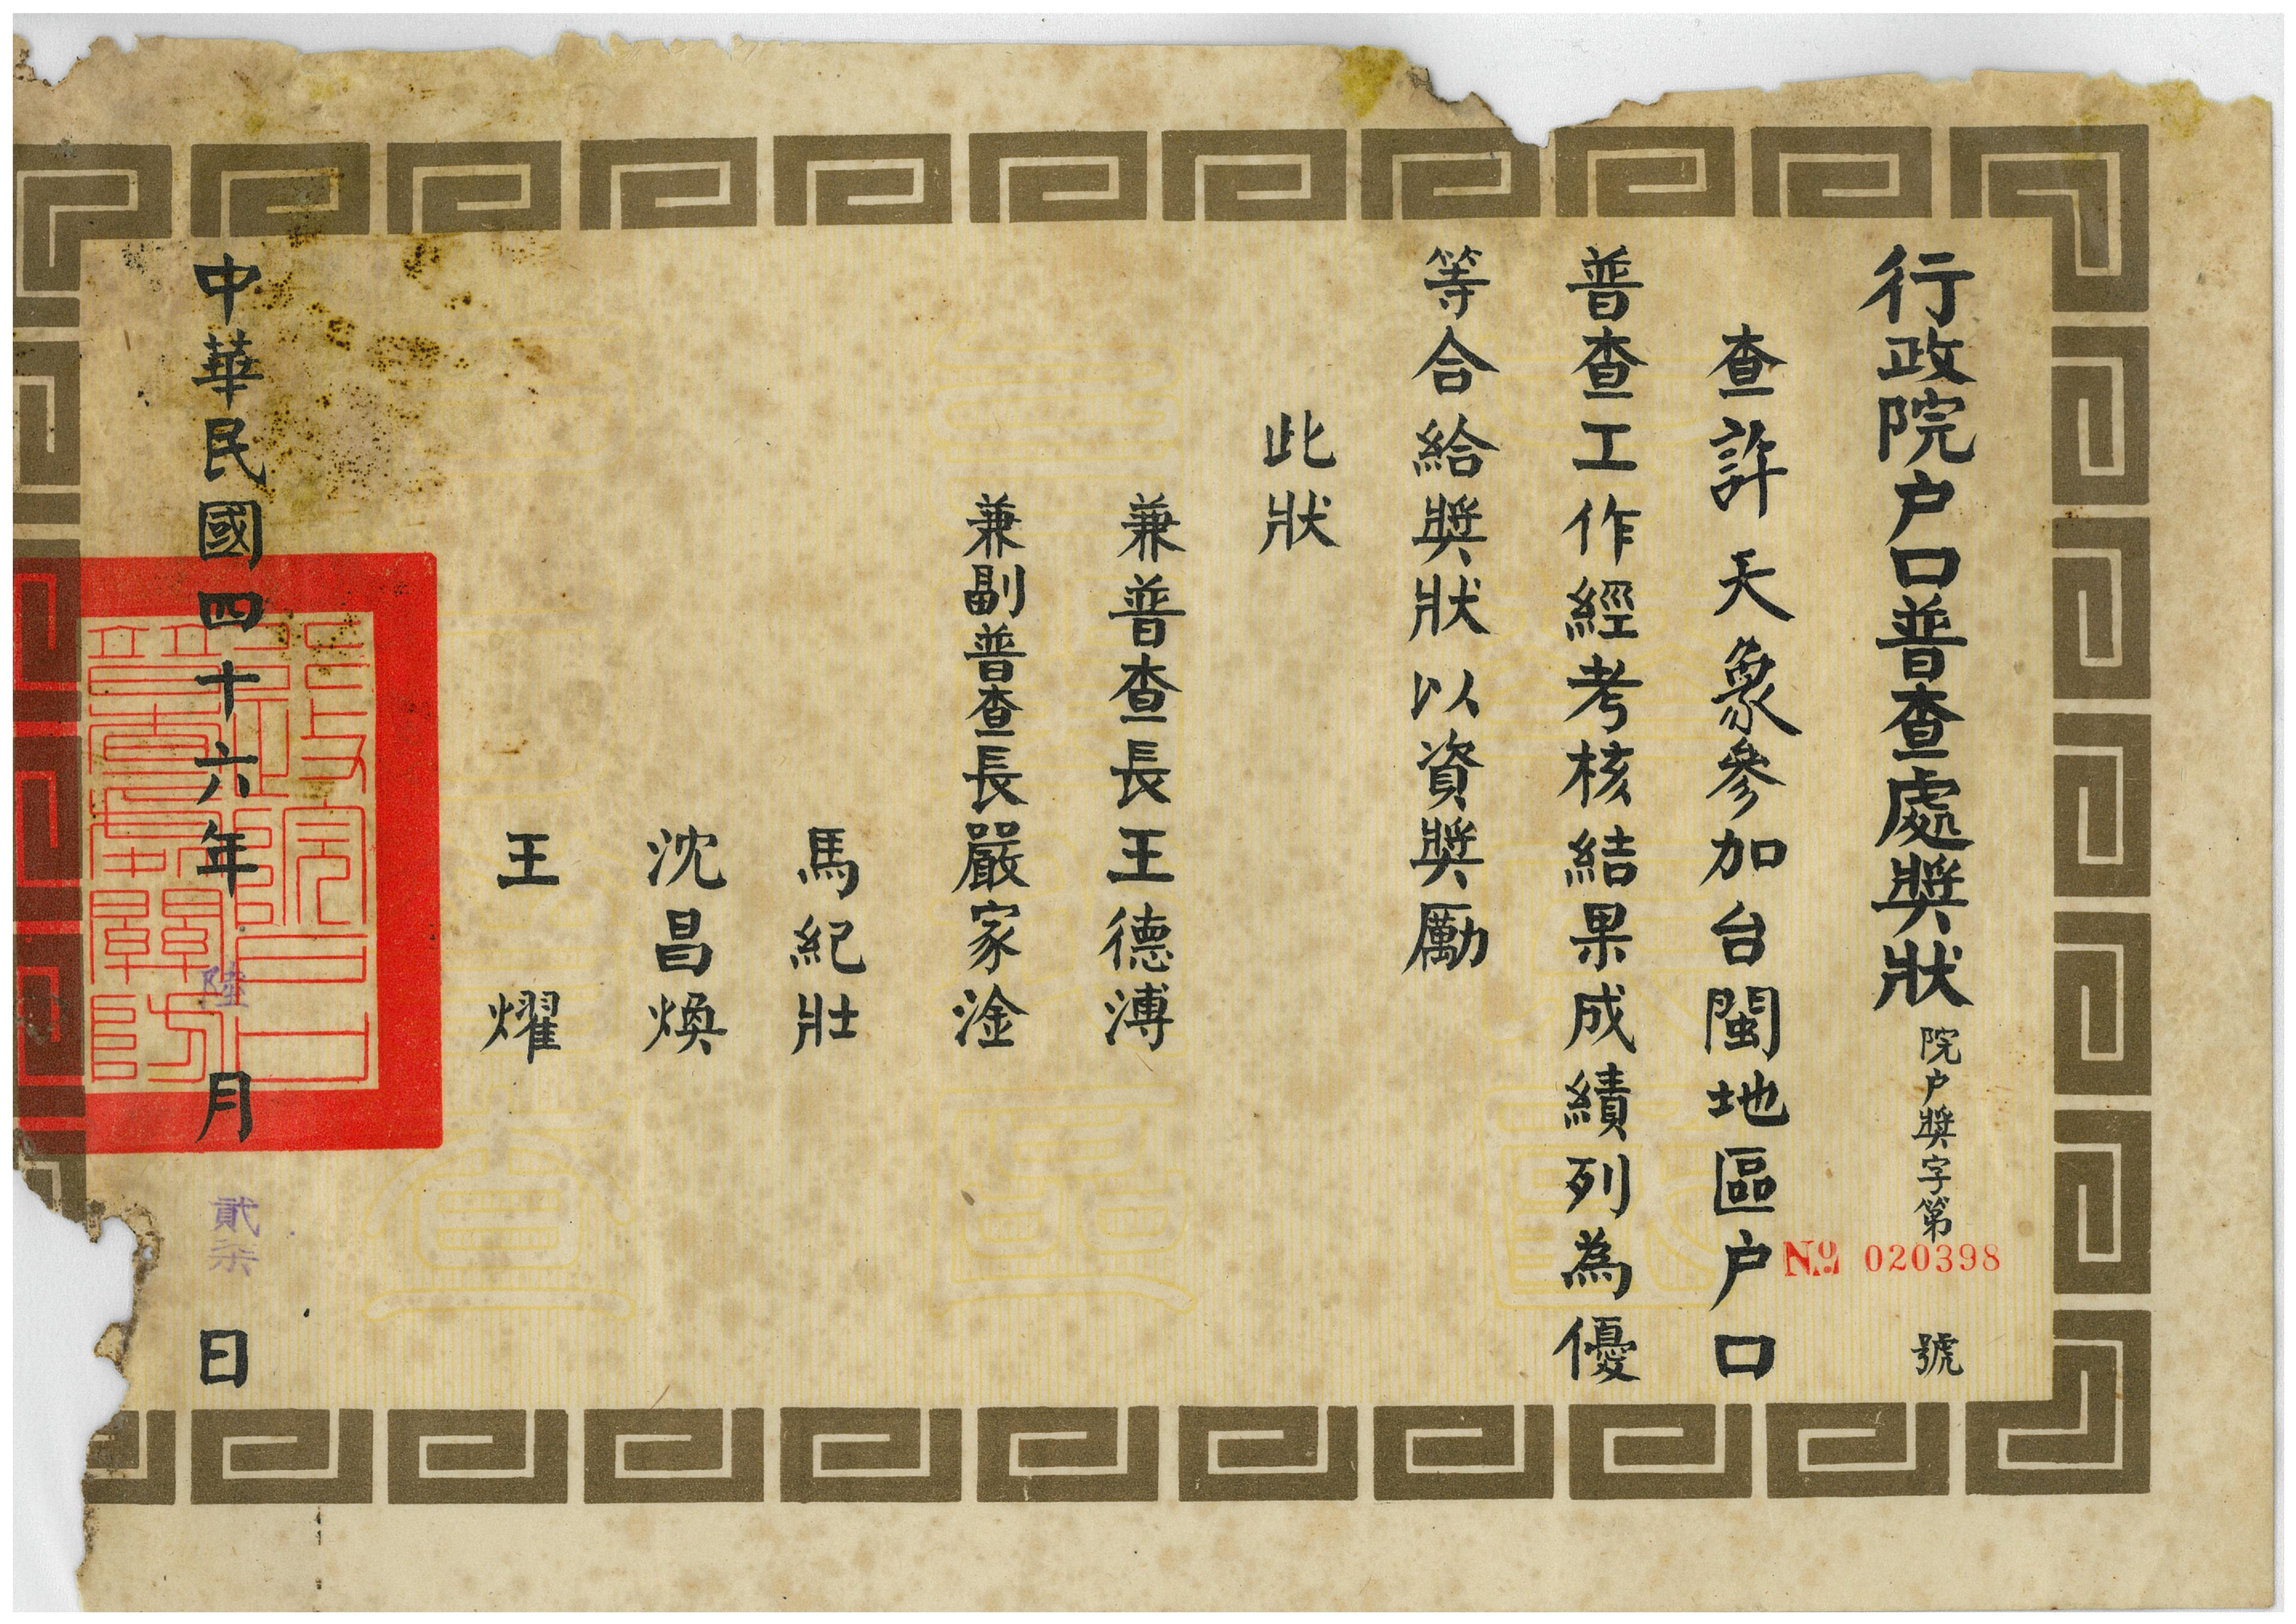 行政院户口普查處獎狀 院户獎字第 № 020398 號
查許天象參加台閩地區户口
普查工作經考核結果成績列為優
等合給獎狀以資獎勵
此狀
兼普查長王德溥
兼副普查長嚴家淦
馬紀壯
沈昌煥
王耀
中華民國四十六年陸月貳柒日